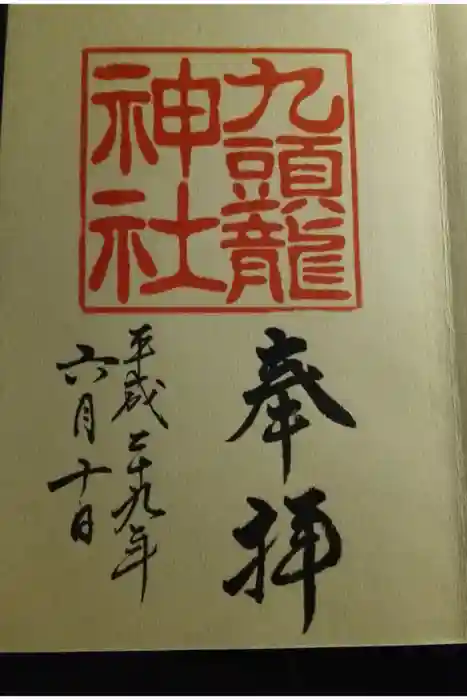 九頭龍
神社
奉拝
平成二十九年
六月十日